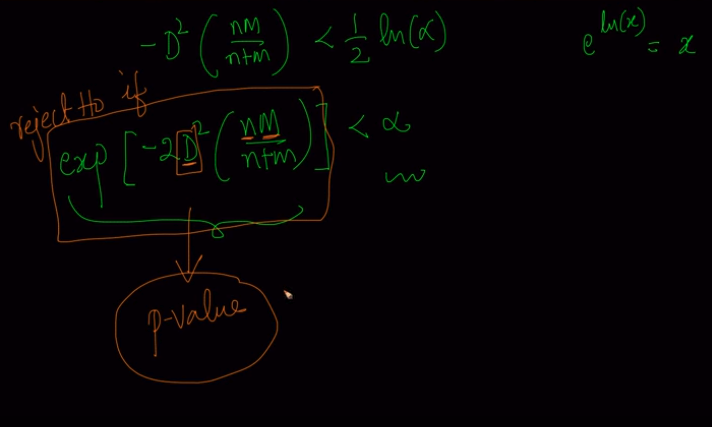 -D² (nM/n+m) < 1/2 ln(α)
e^ln(x) = x
reject H₀ if
exp [-2D² (nM/n+m)] < α
p-value